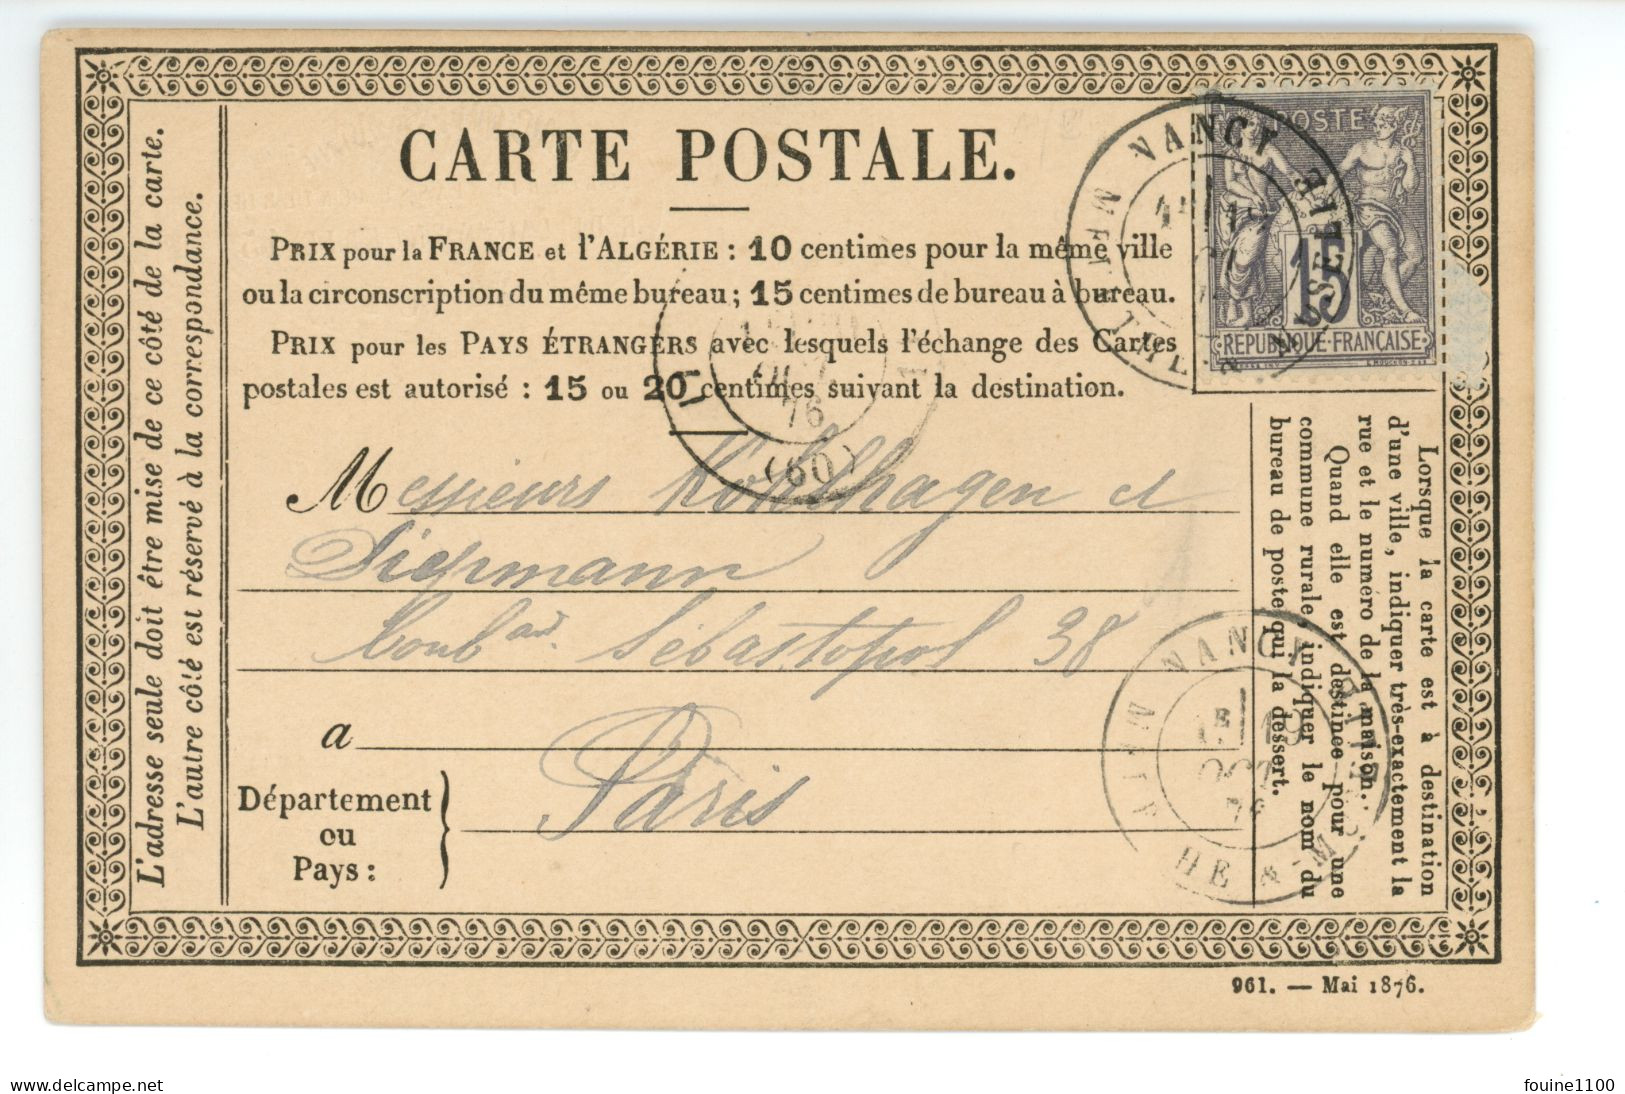 CARTE POSTALE.
PRIX pour la FRANCE et l'ALGÉRIE : 10 centimes pour la même ville
ou la circonscription du même bureau ; 15 centimes de bureau à bureau.
PRIX pour les PAYS ÉTRANGERS avec lesquels l'échange des Cartes
postales est autorisé : 15 ou 20 centimes suivant la destination.
L'adresse seule doit être mise de ce côté de la carte.
L'autre côté est réservé à la correspondance.
POSTE
15
REPUBLIQUE FRANÇAISE
NANCY
MEURTHE & MOSELLE
OCT
76
(60)
Messieurs Kohlhagen et
Siepmann
Boulard. Sébastopol 38
a
Paris
Département
ou
Pays :
Lorsque la carte est à destination
d'une ville, indiquer très-exactement la
rue et le numéro de la maison.
Quand elle est destinée pour une
commune rurale, indiquer le nom du
bureau de poste qui la dessert.
NANCY
19
OCT
76
961. — Mai 1876.
www.delcampe.net
fouine1100